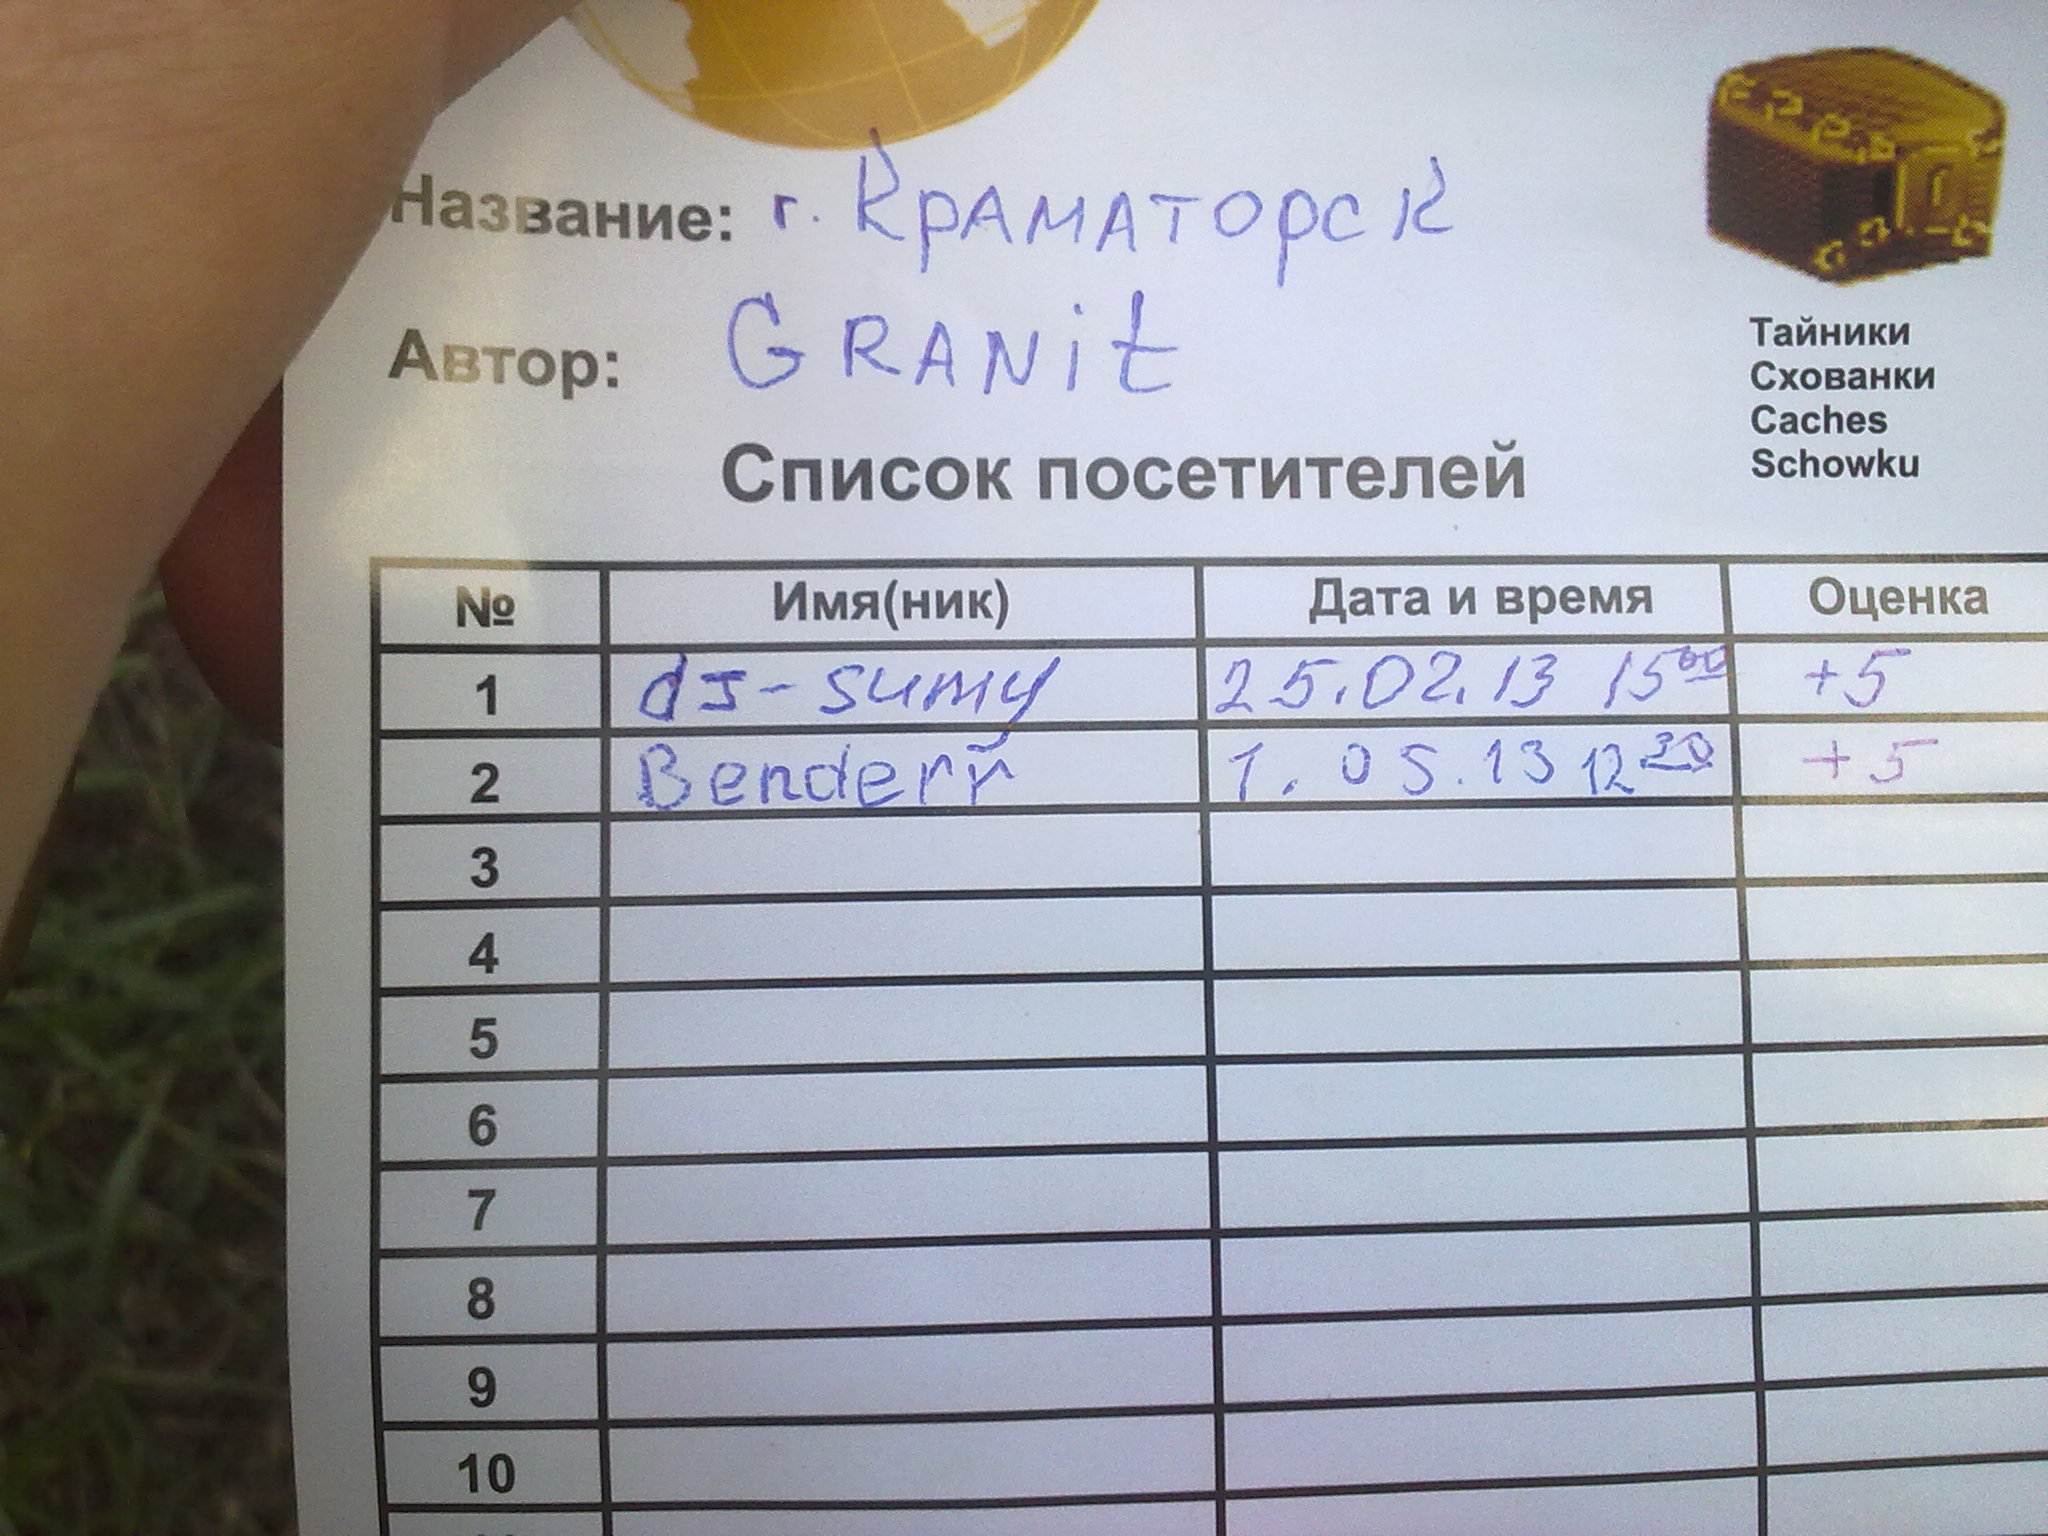 Название: г. Краматорск
Автор: GRANit
Тайники
Схованки
Caches
Schowku
Список посетителей
№ Имя(ник) Дата и время Оценка
1 dJ-sumy 25.02.13 15⁰⁰ +5
2 Benderr 1.05.13 12³⁰ +5
3
4
5
6
7
8
9
10